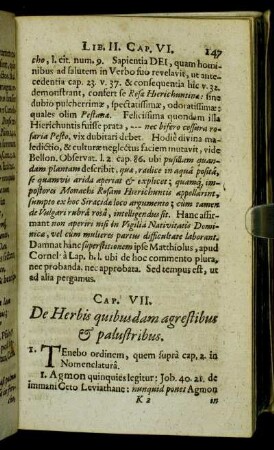 LIB. II. CAP. VI. 147
cho, l. cit. num. 9. Sapientia DEI, quam homi-
nibus ad salutem in Verbo suo revelavit, ut ante-
cedentia cap. 23. v. 37. & consequentia hîc v. 32.
demonstrant, confert se Rosæ Hierichuntinæ: sine
dubio pulcherrimæ, spectatissimæ, odoratissimæ:
quales olim Pestanæ. Felicissima quondam illa
Hierichuntis fuisse prata, --- nec bifero cessura ro-
saria Pesto, vix dubitari debet. Hodiè divina ma-
ledictio, & culturæ neglectus faciem mutavit, vide
Bellon. Observat. l. 2. cap. 86. ubi pusillam quan-
dam plantam describit, quæ, radice in aquâ positâ,
se quamvis arida aperiat & explicet; quamq, im-
postores Monachi Rosam Hierichuntis appellarint,
sumpto ex hoc Siracidæ loco argumento; cum tamen
de Vulgari rubrâ rosâ, intelligendus sit. Hanc affir-
mant non aperiri nisi in Vigilia Nativitatis Domi-
nica, vel cùm mulieres partus difficultate laborant.
Damnat hanc superstitionem ipse Matthiolus, apud
Cornel à Lap. h. l. ubi de hoc commento plura,
nec probanda, nec approbata. Sed tempus est, ut
ad alia pergamus.
CAP. VII.
De Herbis quibusdam agrestibus
& palustribus.
1. Tenebo ordinem, quem suprà cap. 2. in
Nomenclaturâ.
1. Agmon quinquies legitur: Job. 40. 21. de
immani Ceto Leviathane: nunquid pones Agmon
K 2 in